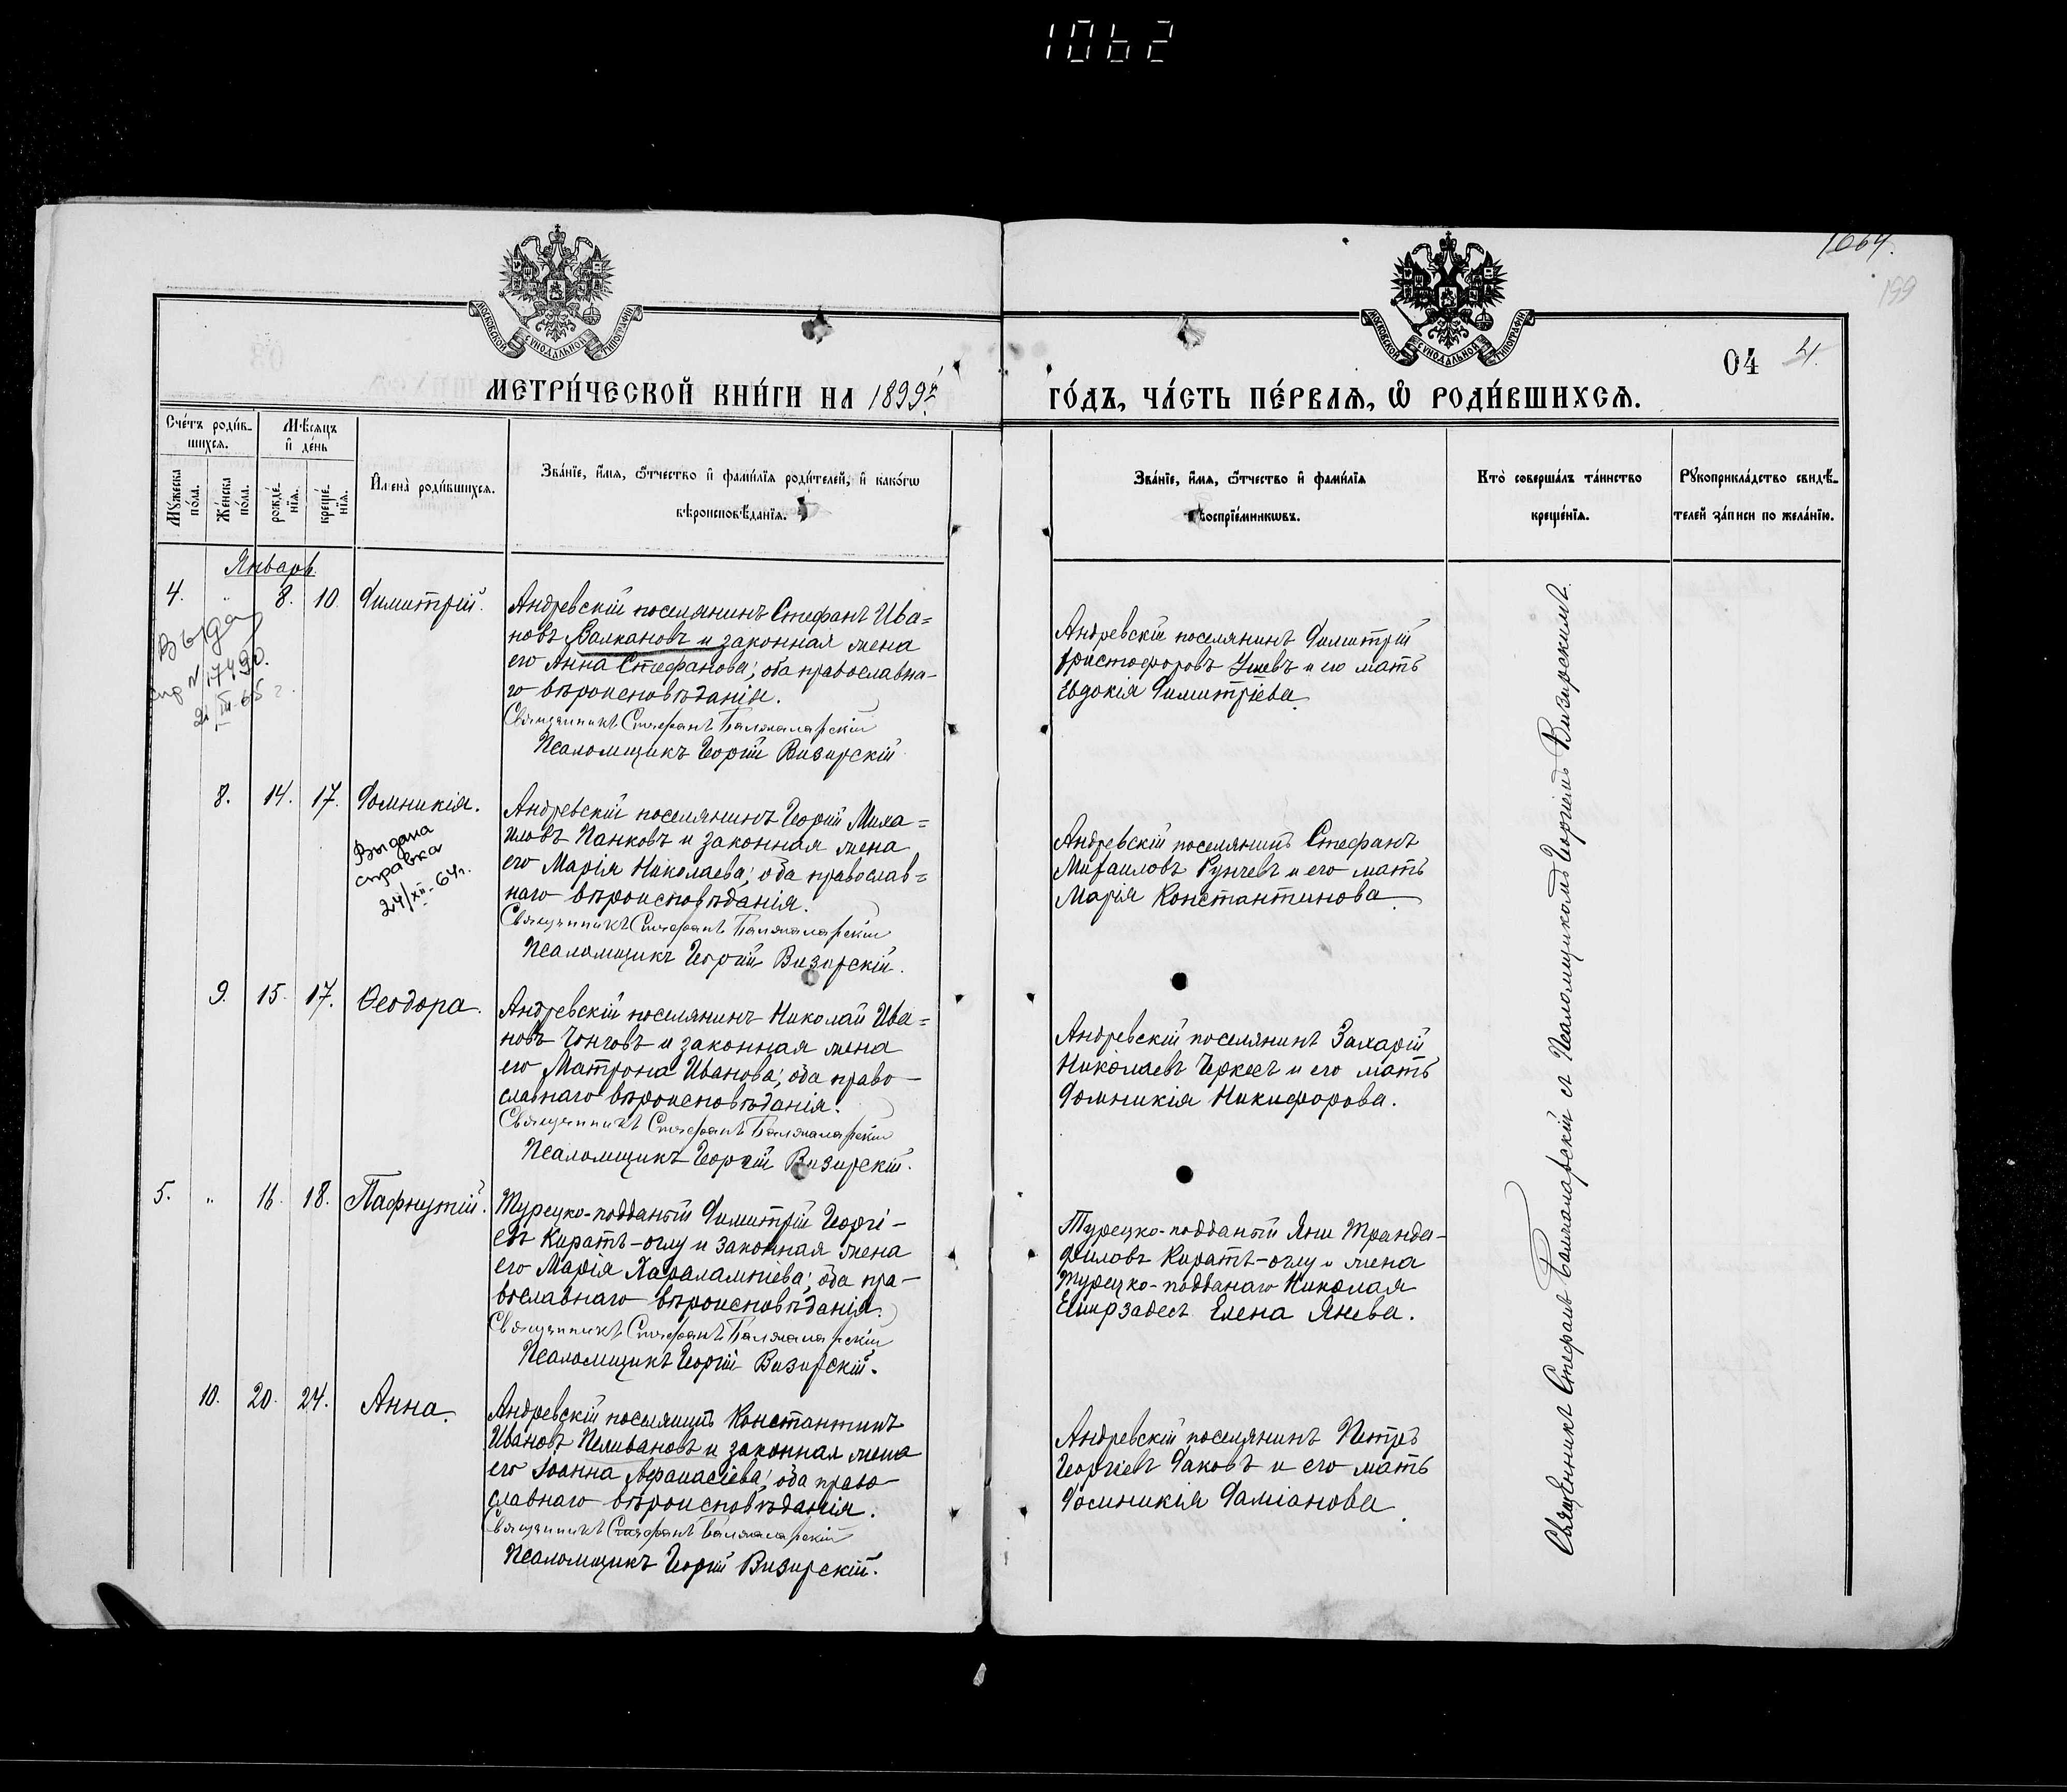 1062
1064.
199
МОСКОВСКОЙ СѴНОДАЛЬНОЙ ТИПОГРАФІИ
МОСКОВСКОЙ СѴНОДАЛЬНОЙ ТИПОГРАФІИ
04 4.
МЕТРИ́ЧЕСКОЙ КНИ́ГИ НА 1899й
ГО́ДЪ, ЧА́СТЬ ПЕ́РВАѦ, Ѡ҆ РОДИ́ВШИХСѦ.
Сче́тъ роди́в-
шихсѧ.
Мѣ́сѧцъ
и҆ де́нь
Мꙋ́жеска
по́ла.
Же́нска
по́ла.
рожде́-
нїѧ.
креще́-
нїѧ.
И҆мена̀ роди́вшихсѧ.
Зва́нїе, и҆́мѧ, ѻ҆́тчество и҆ фами́лїѧ роди́телей, и҆ како́гѡ
вѣроисповѣ́данїѧ.
Зва́нїе, и҆́мѧ, ѻ҆́тчество и҆ фами́лїѧ
воспрїе́мникѡвъ.
Кто̀ соверша́лъ та́инство
креще́нїѧ.
Рꙋкоприкла́дство свидѣ́-
телей за́писи по жела́нїю.
Январь.
4. " 8. 10. Димитрій.
Выдан
спр N17490.
21 III-65 г.
Андревскій поселянинъ Стефанъ Ива=
новъ Валкановъ и законная жена
его Анна Стефанова; оба православна-
го вѣроисповѣданія.
Священникъ Стефанъ Балжаларскій
Псаломщикъ Георгій Визирскій
Андревскій поселянинъ Димитрій
Христофоровъ Ушевъ и его мать
Евдокія Димитріева.
8. 14. 17. Домникія.
Выдана
справка
24/XII-64г.
Андревскій поселянинъ Георгій Миха=
иловъ Панковъ и законная жена
его Марія Николаева; оба православ=
наго вѣроисповѣданія.
Священникъ Стефанъ Балжаларскій
Псаломщикъ Георгій Визирскій.
Андревскій поселянинъ Стефанъ
Михаиловъ Рунчевъ и его мать
Марія Константинова
9. 15. 17. Ѳеодора.
Андревскій поселянинъ Николай Ива=
новъ Чонговъ и законная жена
его Матрона Иванова; оба право-
славнаго вѣроисповѣданія.
Священникъ Стефанъ Балжаларскій
Псаломщикъ Георгій Визирскій.
Андревскій поселянинъ Захарій
Николаевъ Черкезъ и его мать
Домникія Никифорова.
5. " 16. 18. Пафнутій.
Турецко-подданый Димитрій Георгі-
евъ Киратъ-оглу и законная жена
его Марія Харалампіева; оба пра-
вославнаго вѣроисповѣданія.
Священникъ Стефанъ Балжаларскій
Псаломщикъ Георгій Визирскій.
Турецко-подданый Яни Транда-
филовъ Киратъ-оглу и жена
турецко-подданаго Николая
Емирзадесъ Елена Янева.
10. 20. 24. Анна.
Андревскій поселянинъ Константинъ
Ивановъ Пеливановъ и законная жена
его Іоанна Аѳанасіева; оба право-
славнаго вѣроисповѣданія.
Священникъ Стефанъ Балжаларскій
Псаломщикъ Георгій Визирскій.
Андревскій поселянинъ Петръ
Георгіевъ Даковъ и его мать
Домникія Даміанова.
Священникъ Стефанъ Балжаларскій съ Псаломщикомъ Георгіемъ Визирскимъ.